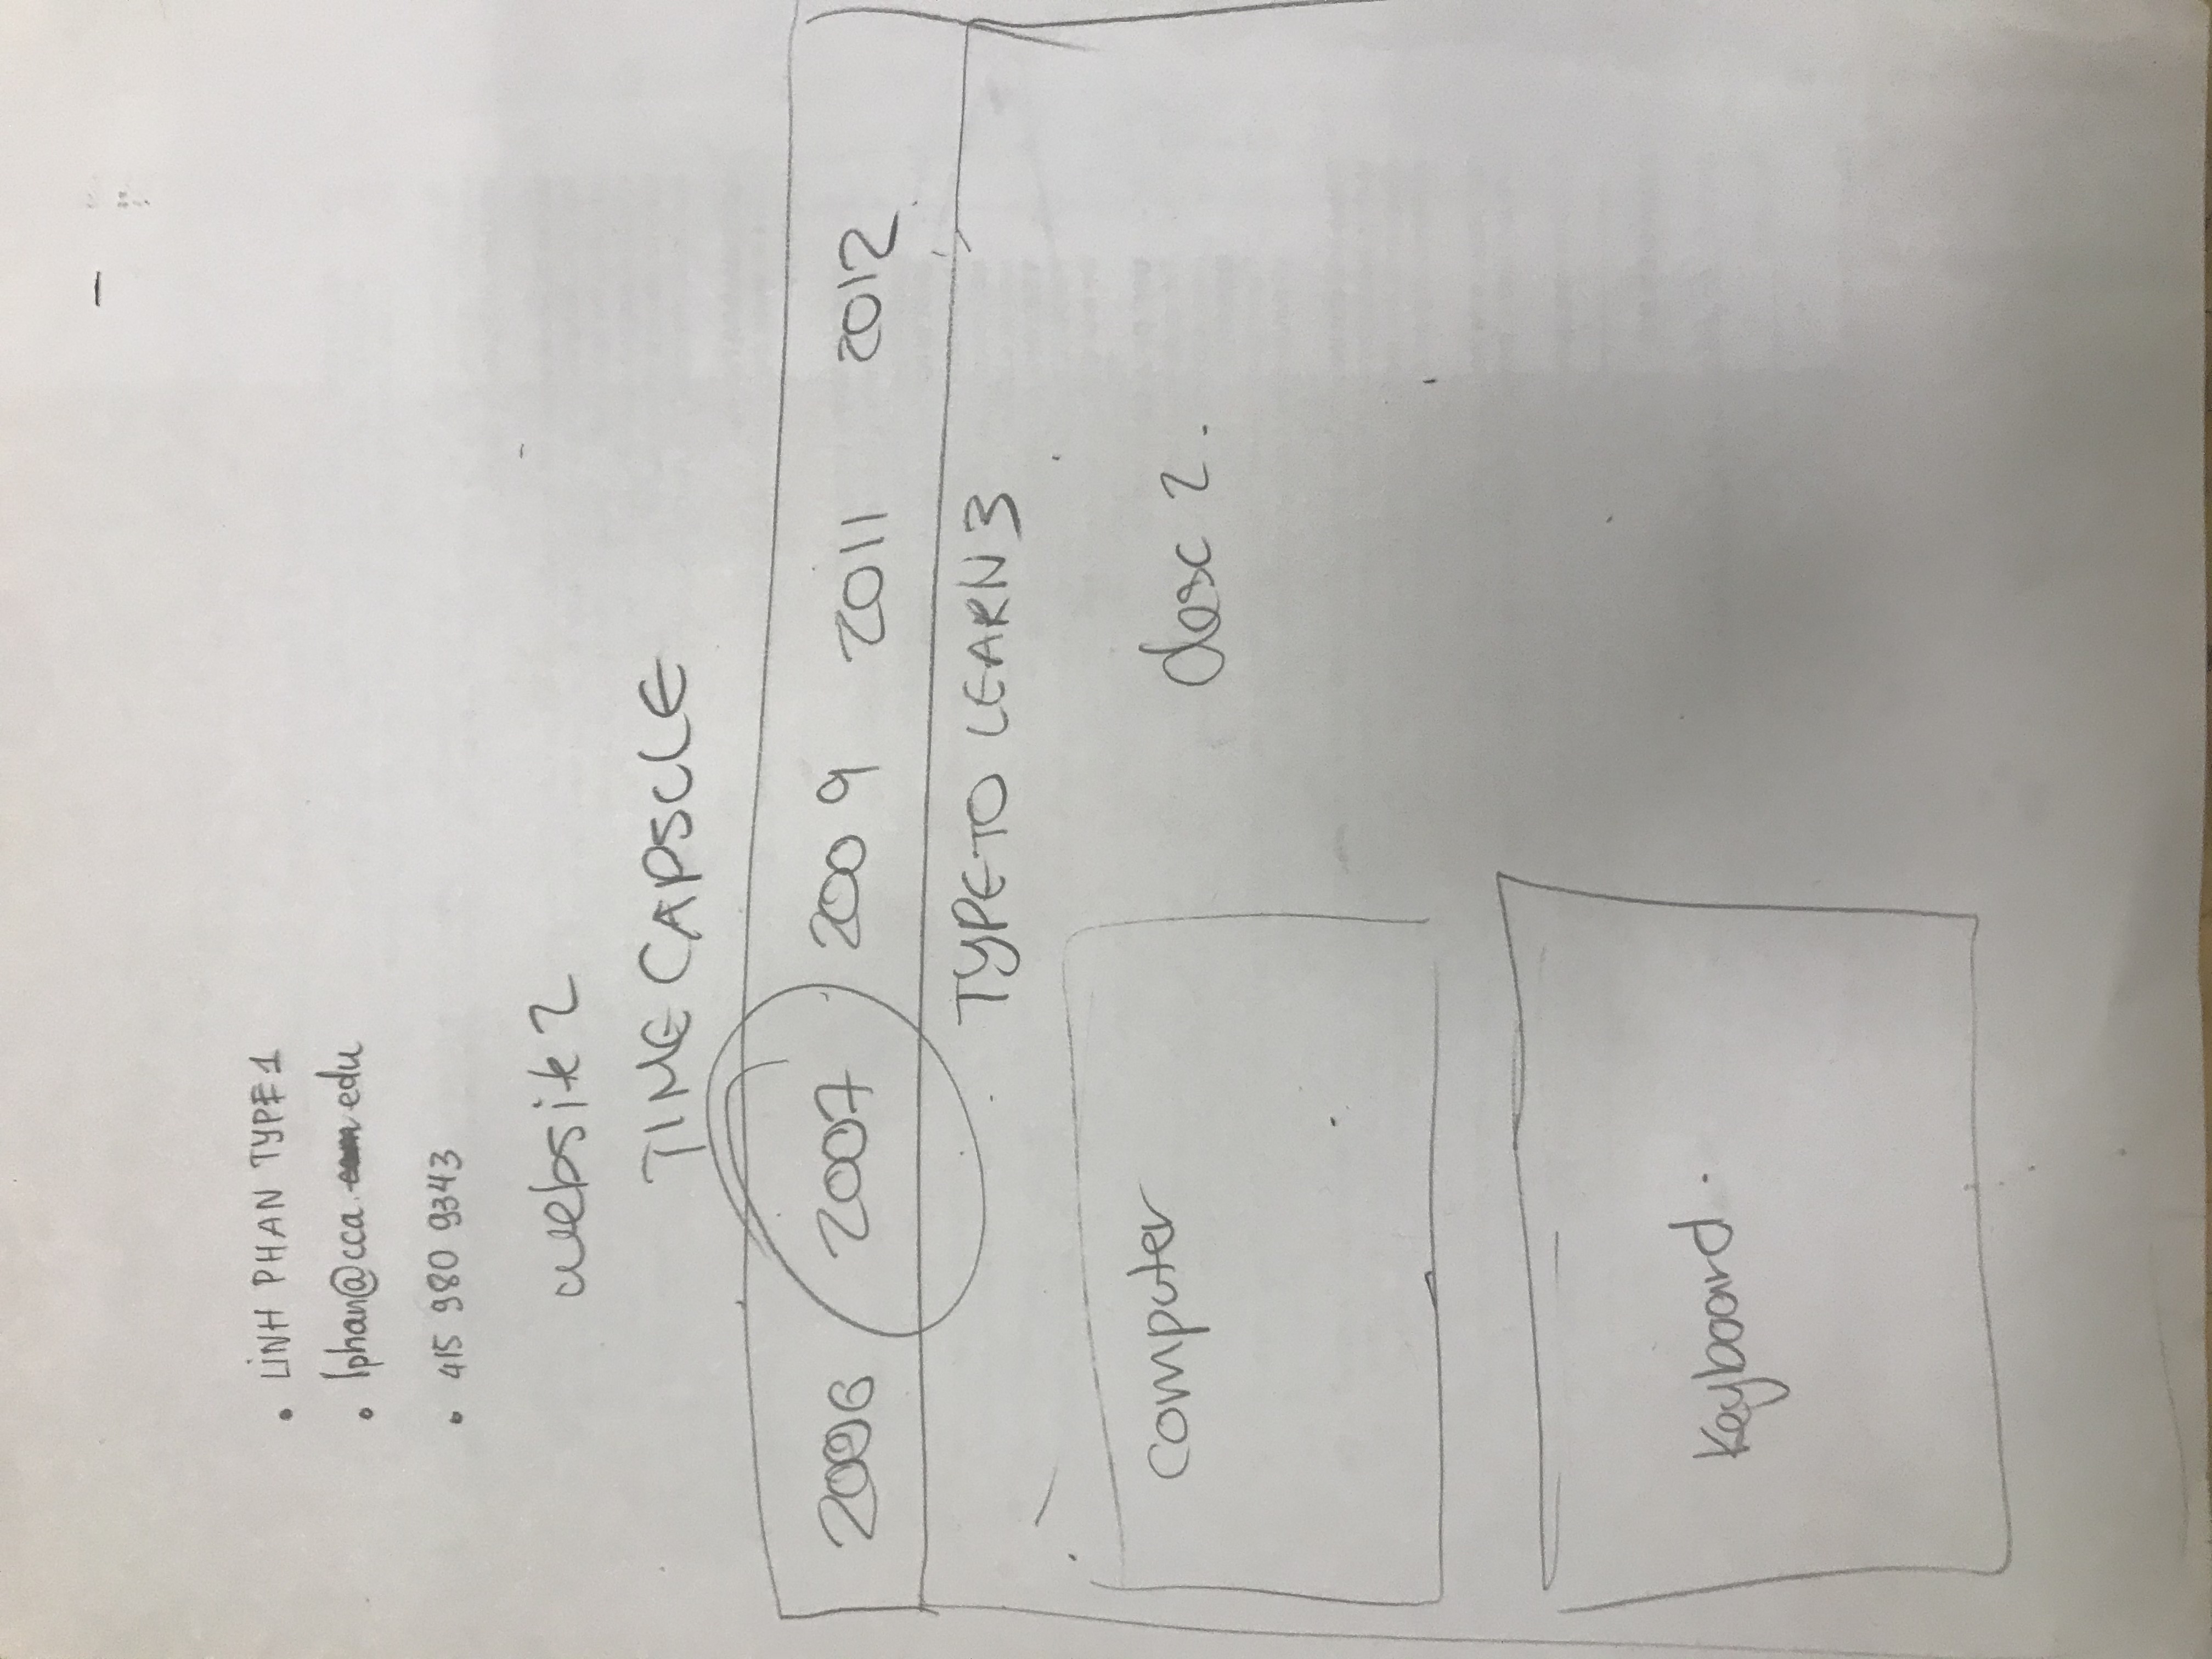 • LINH PHAN TYPE 1
• lphan@cca.com edu
• 415 980 9343
website 2
TIME CAPSULE
2006 2007 2009 2011 2012
TYPE TO LEARN 3
computer
desc 2.
keyboard.